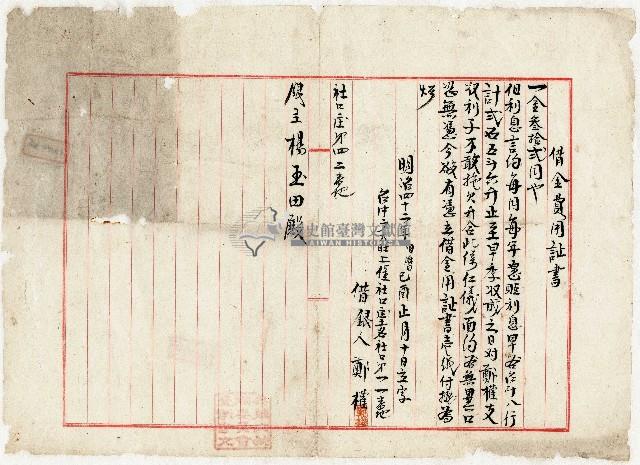 借金費用証書
一金叁拾弍円也
但利息言約每円每年愿貼利息早谷
計弍石五斗六升正至早季收成之日對鄭權支
收利子不敢拖欠升合此係仁儀面約各無異言口
恐無憑今欲有憑立借金用証書壱紙付執為
炤
明治四十二年
己酉正月十日立字
社口庄
借銀人 鄭權
社口庄第四二番地
銀主 楊玉田殿
史館臺灣文獻館
TAIWAN HISTORICA